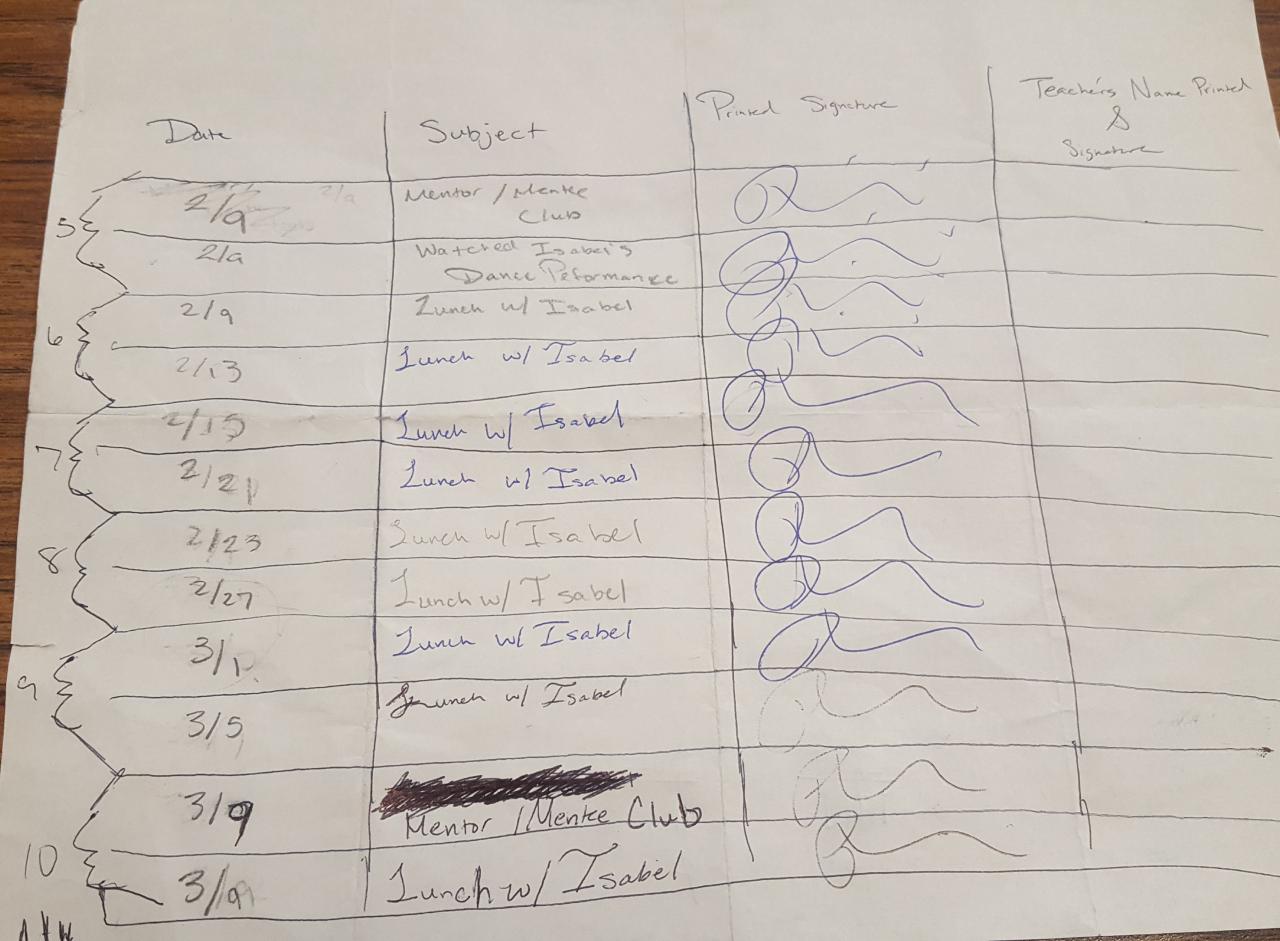 Date Subject Printed Signature Teacher's Name Printed
&
Signature
5 2/9 2/9 Mentor / Mentee
Club
2/9 Watched Isabel's
Dance Peformance
6 2/9 Lunch w/ Isabel
2/13 Lunch w/ Isabel
7 2/15 Lunch w/ Isabel
2/21 Lunch w/ Isabel
8 2/23 Lunch w/ Isabel
2/27 Lunch w/ Isabel
9 3/1 Lunch w/ Isabel
3/5 Lunch w/ Isabel
3/9
Mentor / Mentee Club
10 3/9 Lunch w/ Isabel